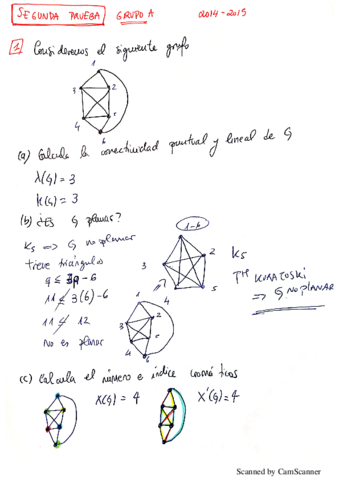 SEGUNDA PRUEBA GRUPO A 2014-2015
1 Consideremos el siguiente grafo
1
3 2
4 5
6
(a) Calcula la conectividad puntual y lineal de G
λ(G) = 3
K(G) = 3
(b) ¿Es G planar?
K5 => G no planar
tiene triángulos
q ≤ 3p - 6
11 ≤ 3(6) - 6
11 ≤ 12
No es planar
1-6
3 2
4 5
K5
Tma KURATOSKI
=> G NO PLANAR
1
3 2
4 5
6
(c) Calcula el número e índice cromáticos
χ(G) = 4 χ'(G) = 4
Scanned by CamScanner